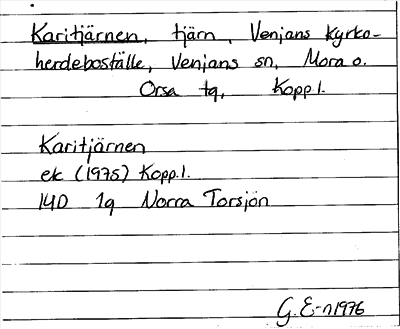 Karitjärnen, tjärn, Venjans kyrko-
herdeboställe, Venjans sn, Mora o.
Orsa tg, Kopp l.
Karitjärnen
ek (1975) Kopp.l.
14D 1g Norra Torsjön
G. E-n 1976